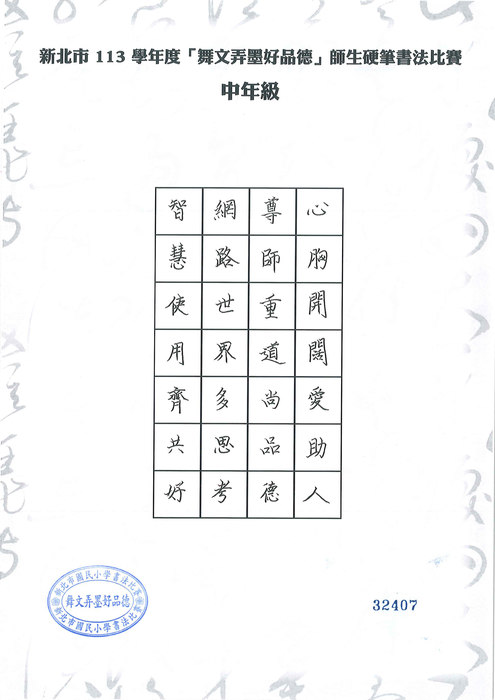 新北市 113 學年度「舞文弄墨好品德」師生硬筆書法比賽
中年級
心胸開闊愛助人
尊師重道尚品德
網路世界多思考
智慧使用齊共好
新北市國民小學書法比賽
舞文弄墨好品德
新北市國民小學書法比賽
32407